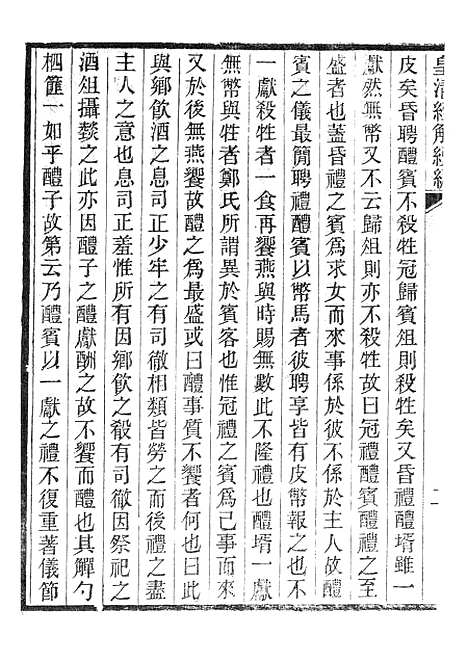 皇清經解續編
皮矣昏聘醴賓不殺牲冠歸賓俎則殺牲矣又昏禮醴壻雖一
獻然無幣又不云歸俎則亦不殺牲故曰冠禮醴賓醴禮之至
盛者也蓋昏禮之賓爲求女而來事係於彼不係於主人故醴
賓之儀最簡聘禮醴賓以幣馬者彼聘享皆有皮幣報之也一
一獻殺牲者一食再饗燕與時賜無數此不隆禮也醴壻一獻
無幣與牲者鄭氏所謂異於賓客也惟冠禮之賓爲己事而來
又於後無燕饗故醴之爲最盛或曰醴事質不饗者何也曰此
與鄉飲酒之息司正少牢之有司徹相類皆勞之而後禮之盡
主人之意也息司正羞惟所有因鄉飲之殽有司徹因祭祀之
酒俎攝爇之此亦因醴子之醴獻酬之故不饗而醴也其觶勺
柶篚一如乎醴子故第云乃醴賓以一獻之禮不復重著儀節